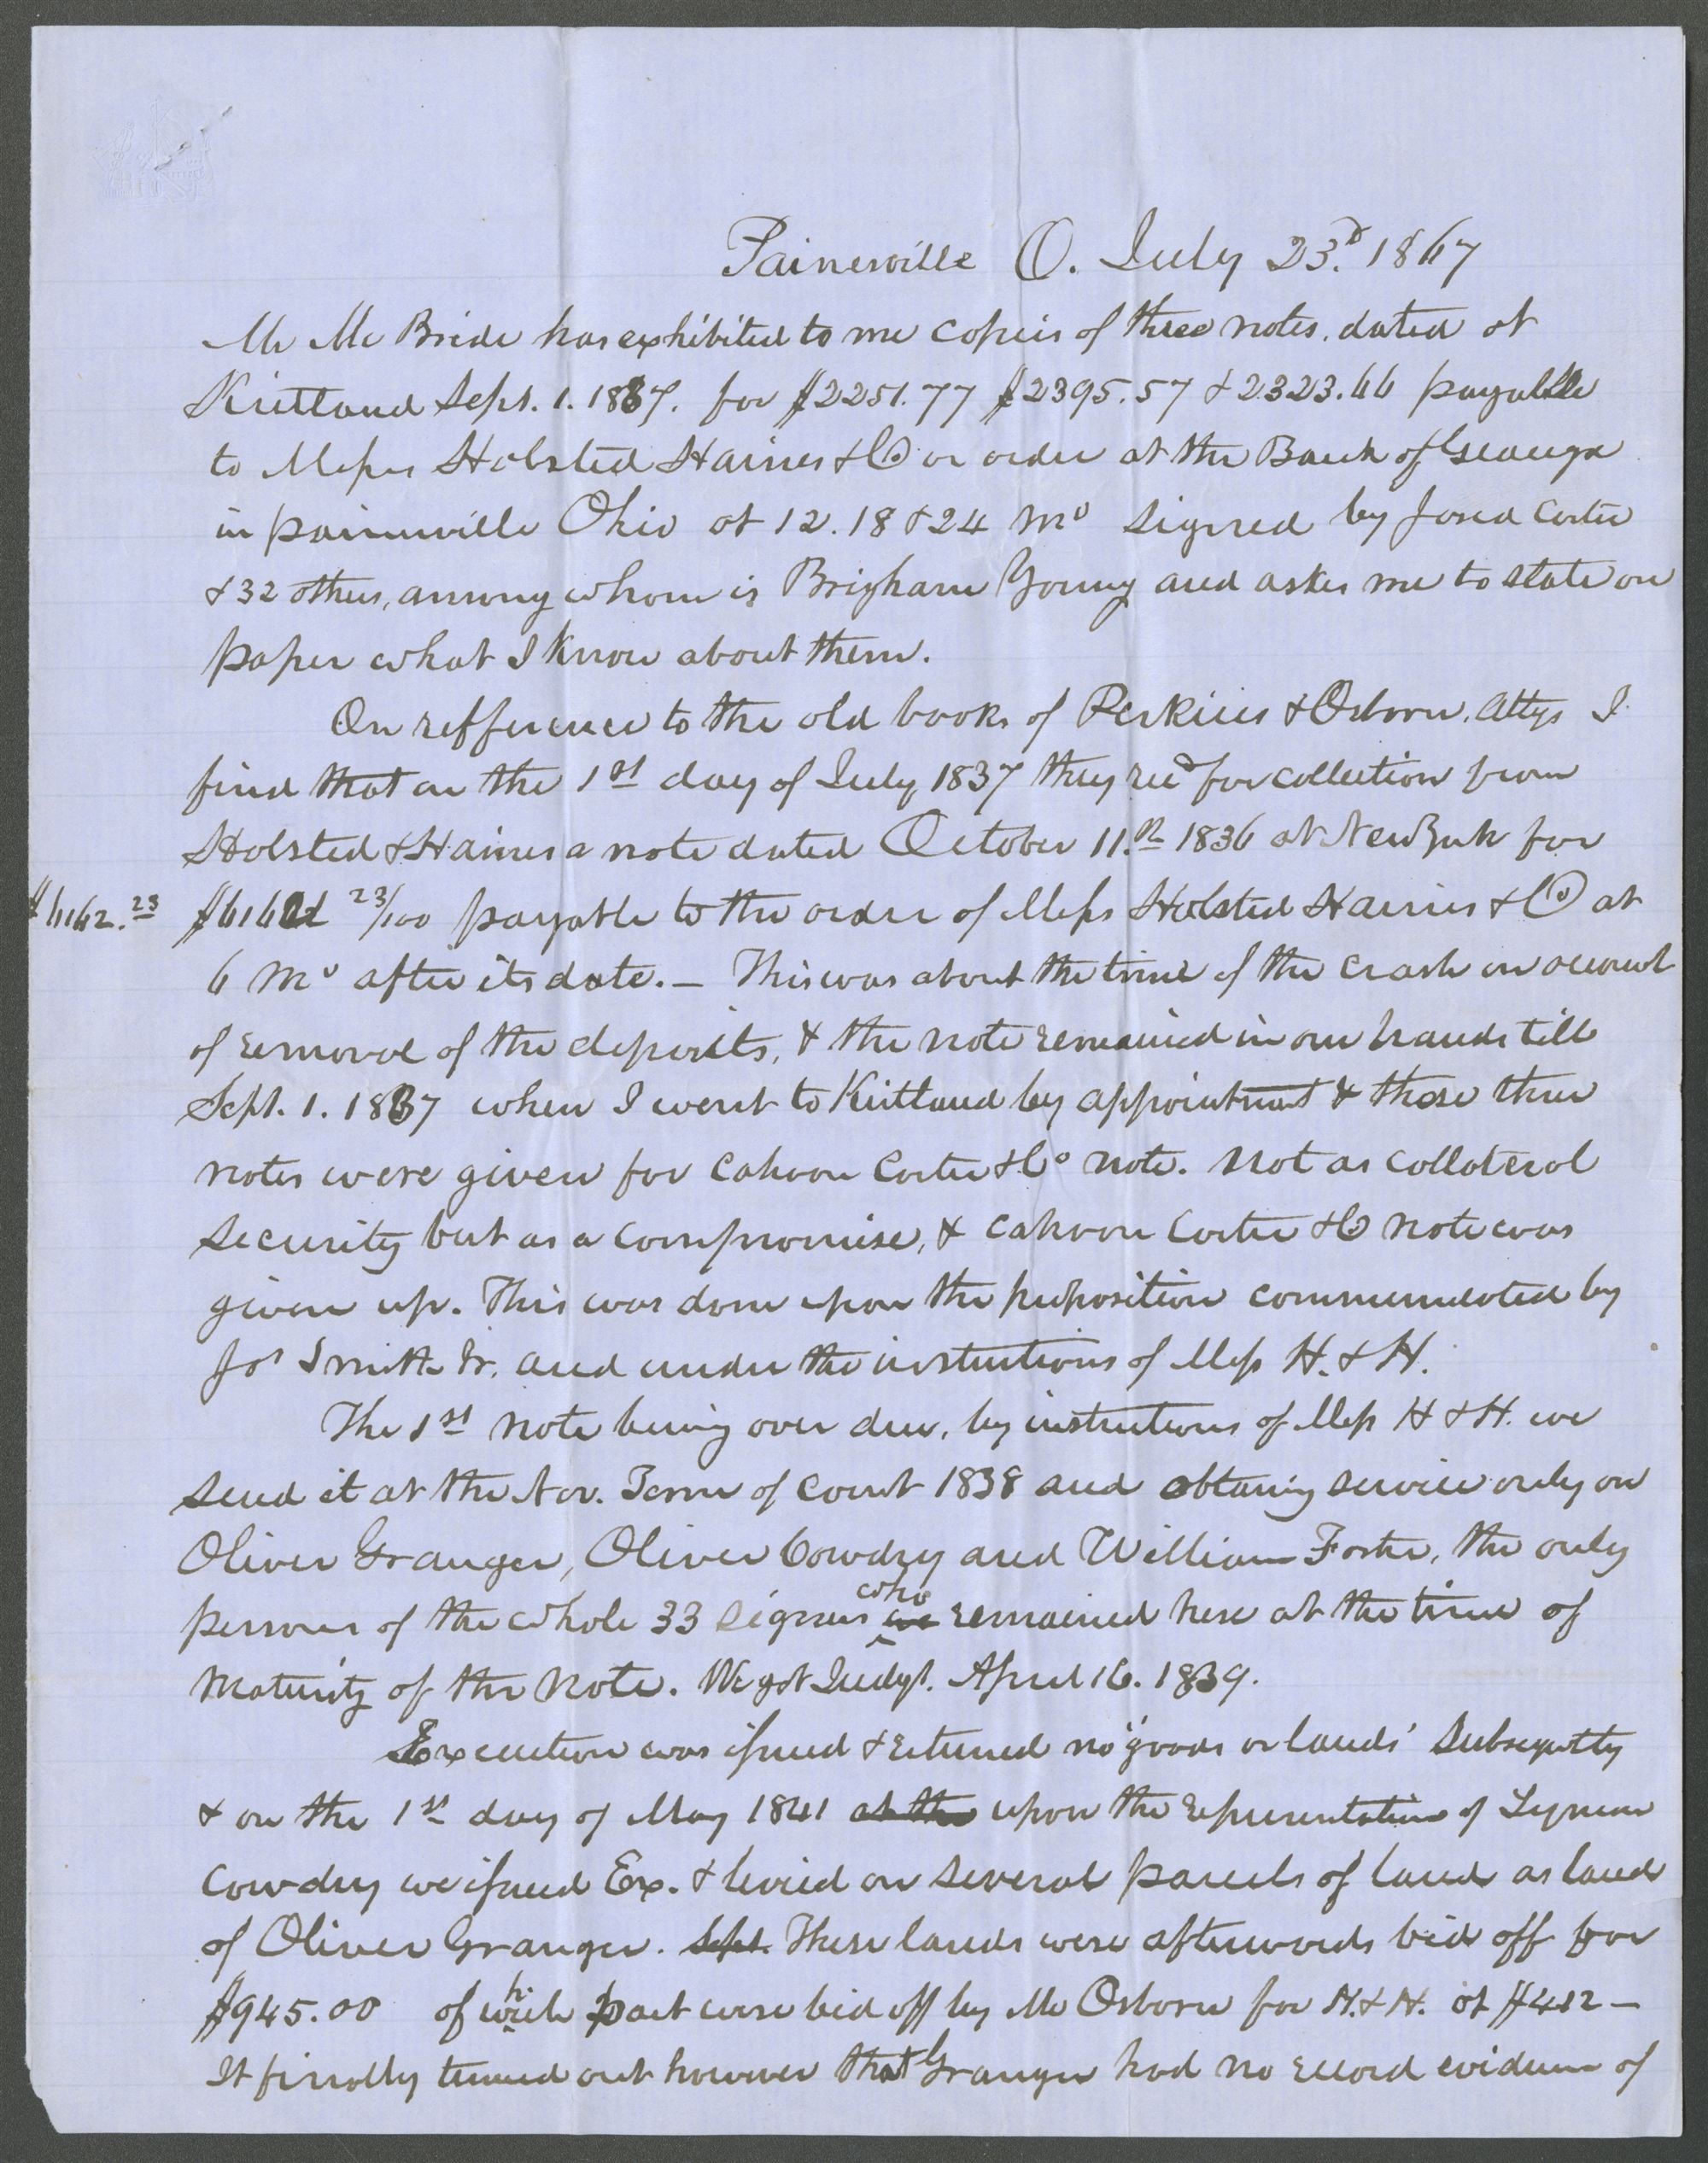 Painesville O. July 23.d 1867
Mr Mc Bride has exhibited to me copies of three notes, dated at
Kirtland Sept. 1. 1837. for $2251.77 $2395.57 & 2323.66 payable
to Messrs Holsted Haines & Co or order at the Bank of Geauga
in painesville Ohio at 12. 18 & 24 Mo signed by Jared Carter
& 32 others, among whom is Brigham Young and askes me to state on
paper what I know about them.
On refference to the old books of Perkins & Osborn, Attys I
find that on the 1st day of July 1837 they recd for collection from
Holsted & Haines a note dated October 11.th 1836 at New York for
$6162.23 $6162 23/100 payable to the order of Messrs Holsted Haines & Co at
6 Mo after its date. — This was about the time of the crash on account
of removal of the deposits, & the note remained in our hands till
Sept. 1. 1837 when I went to Kirtland by appointment & those three
notes were given for Cahoon Carter & Co note. Not as collateral
security but as a compromise, & Cahoon Carter & Co note was
given up. This was done upon the proposition communicated by
Jos Smith Jr. and under the instructions of Mess H. & H.
The 1st note being over due, by instructions of Mess H & H. we
sued it at the Nov. Term of court 1838 and obtaining service only on
Oliver Granger, Oliver Cowdry and William Foster, the only
persons of the whole 33 signers who remained here at the time of
Maturity of the Note. We got Judgt. April 16. 1839.
Execution was issued & returned no "goods or lands' Subsequtly
& on the 1st day of May 1841 at the upon the representation of Lyman
Cowdry we issued Ex. & levied on several parcels of land as land
of Oliver Granger. Sept. These lands were afterwards bid off for
$945.00 of which part were bid off by Mr Osborn for H. & H. at $412 —
It finally turned out however that Granger had no record evidence of